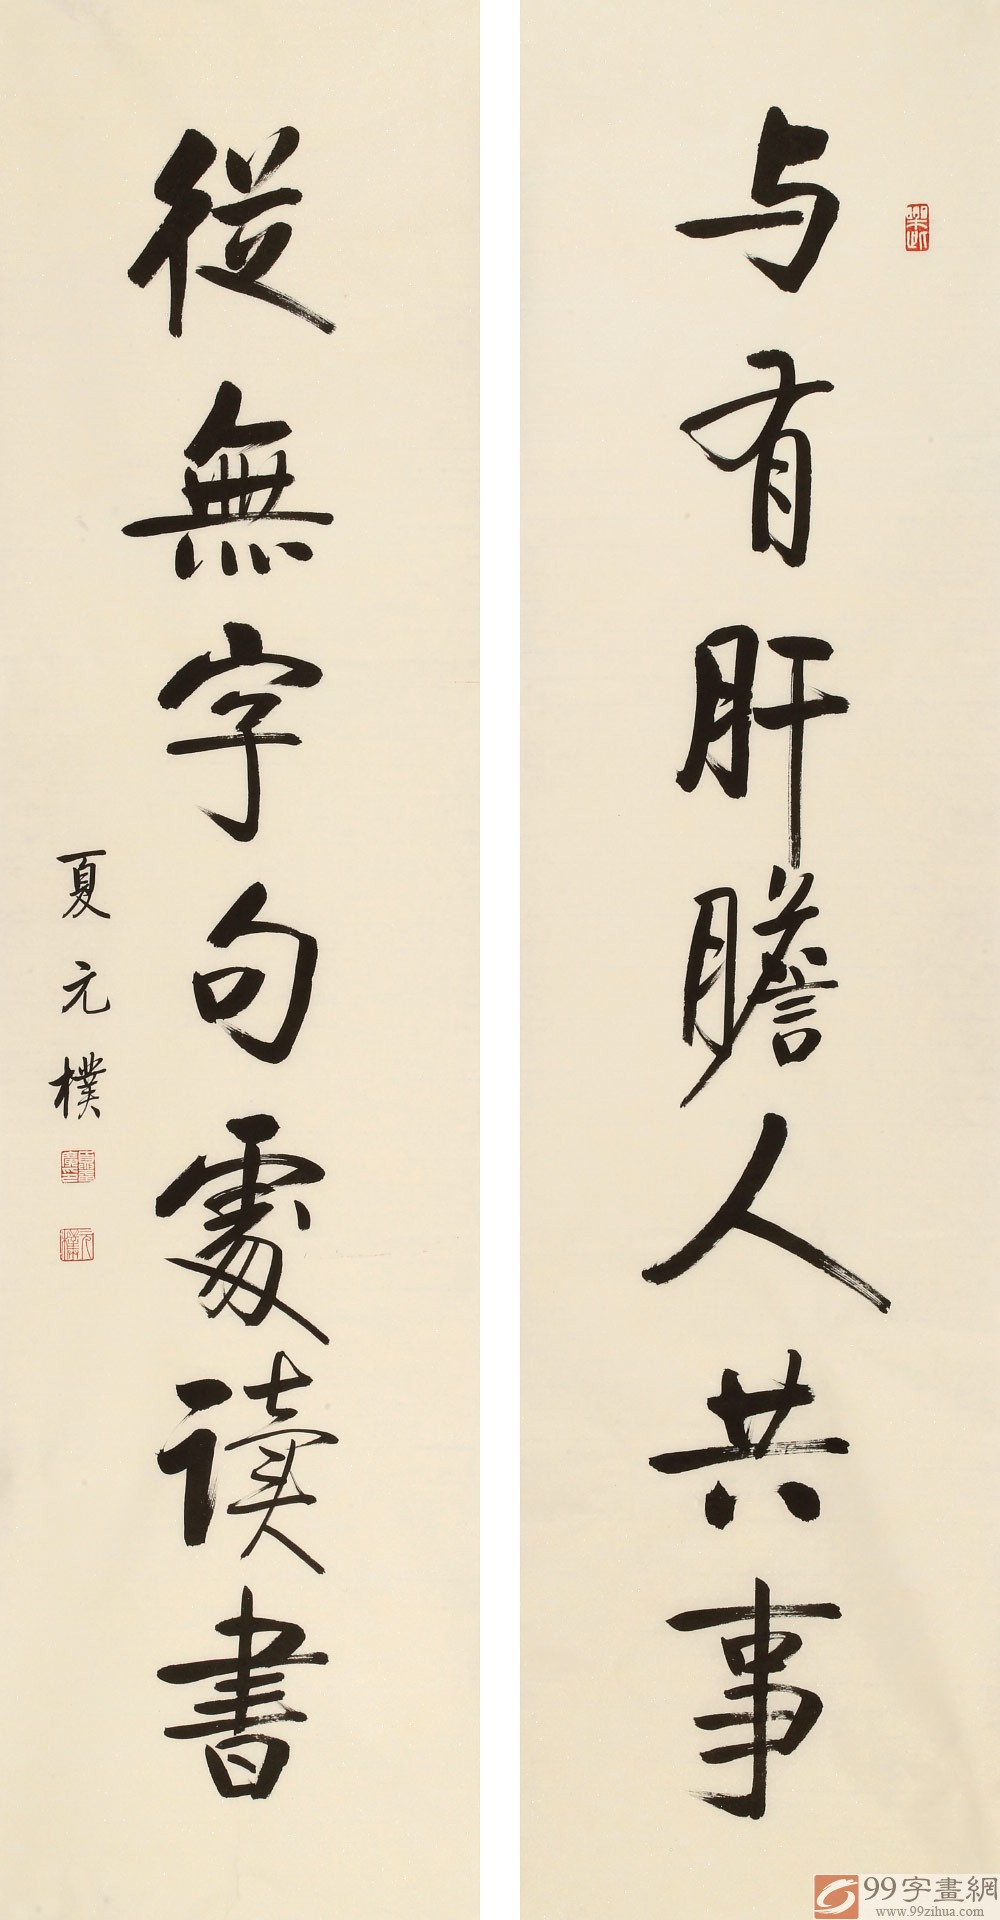 与有肝膽人共事
從無字句處读書
夏元樸
99字畫網
www.99zihua.com